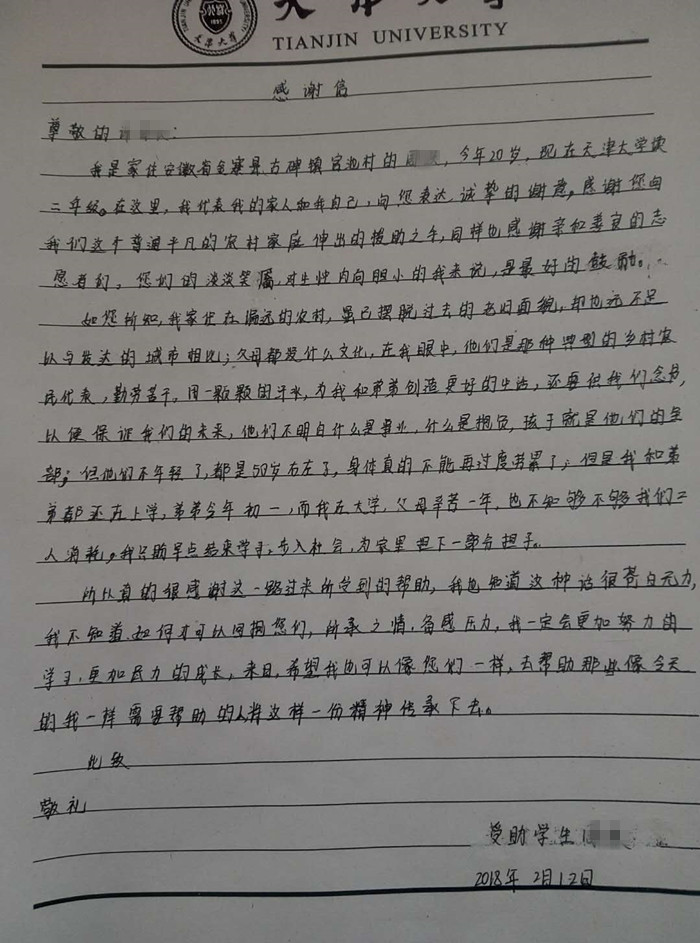 天津大学
TIANJIN UNIVERSITY
1895
天津大学
感谢信
尊敬的
我是家住安徽省金寨县古碑镇宫池村的 ，今年20岁，现在天津大学读
二年级。在这里，我代表我的家人和我自己，向您表达诚挚的谢意，感谢您向
我们这个普通平凡的农村家庭伸出的援助之手，同样也感谢亲和善良的志
愿者们，您们的淡淡笑嘱，对生性内向胆小的我来说，是最好的鼓励。
如您所知，我家住在偏远的农村，虽已摆脱过去的老旧面貌，却也远不足
以与发达的城市相比；父母都没什么文化，在我眼中，他们是那种典型的乡村农
民代表，勤劳苦干，用一颗颗的汗水，为我和弟弟创造更好的生活，还要供我们念书，
以便保证我们的未来，他们不明白什么是事业，什么是抱负，孩子就是他们的全
部；但他们不年轻了，都是50岁左右了，身体真的不能再过度劳累了；但是我和弟
弟都还在上学，弟弟今年初一，而我在大学，父母辛苦一年，也不知够不够我们二
人消耗，我只盼早点结束学习，步入社会，为家里担下一部分担子。
所以真的很感谢这一路过来所受到的帮助，我也知道这种话很苍白无力，
我不知道如何才可以回报您们，所承之情，备感压力，我一定会更加努力的
学习，更加尽力的成长，来日，希望我也可以像您们一样，去帮助那些像今天
的我一样需要帮助的人将这样一份精神传承下去。
此致
敬礼
受助学生
2018年 2月12日